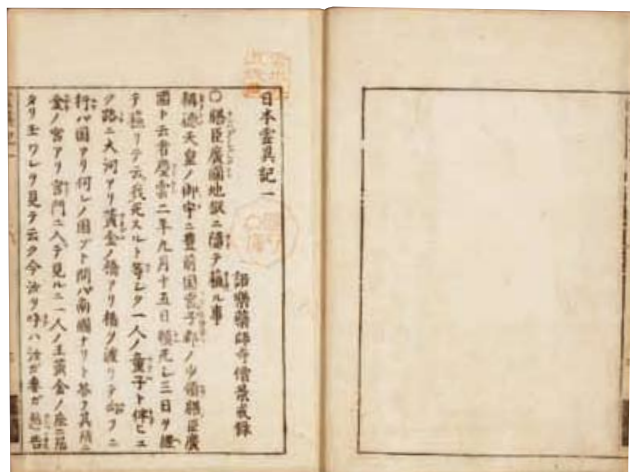 日本霊異記一
諾樂藥師寺僧景戒録
〇膳臣廣國地獄ニ隨テ蘇ル事
稱徳天皇ノ御宇ニ豊前国宮子郡ノ少領膳臣廣
國ト云者慶雲二年九月十五日頓死シ三日ヲ經
テ蘇リテ云我死スルト等シク一人ノ童子ト伴ヒユ
ク路ニ大河アリ黄金ノ橋アリ橋ヲ渡リテ
行バ国アリ何レノ国ゾト問バ南國ナリト答フ其所ニ
金ノ宮アリ宮門ニ入テ見ルニ一人ノ王黄金ノ座ニ
タリ王ワレヲ見テ云ク今汝ヲ呼ハ汝ガ妻ガ